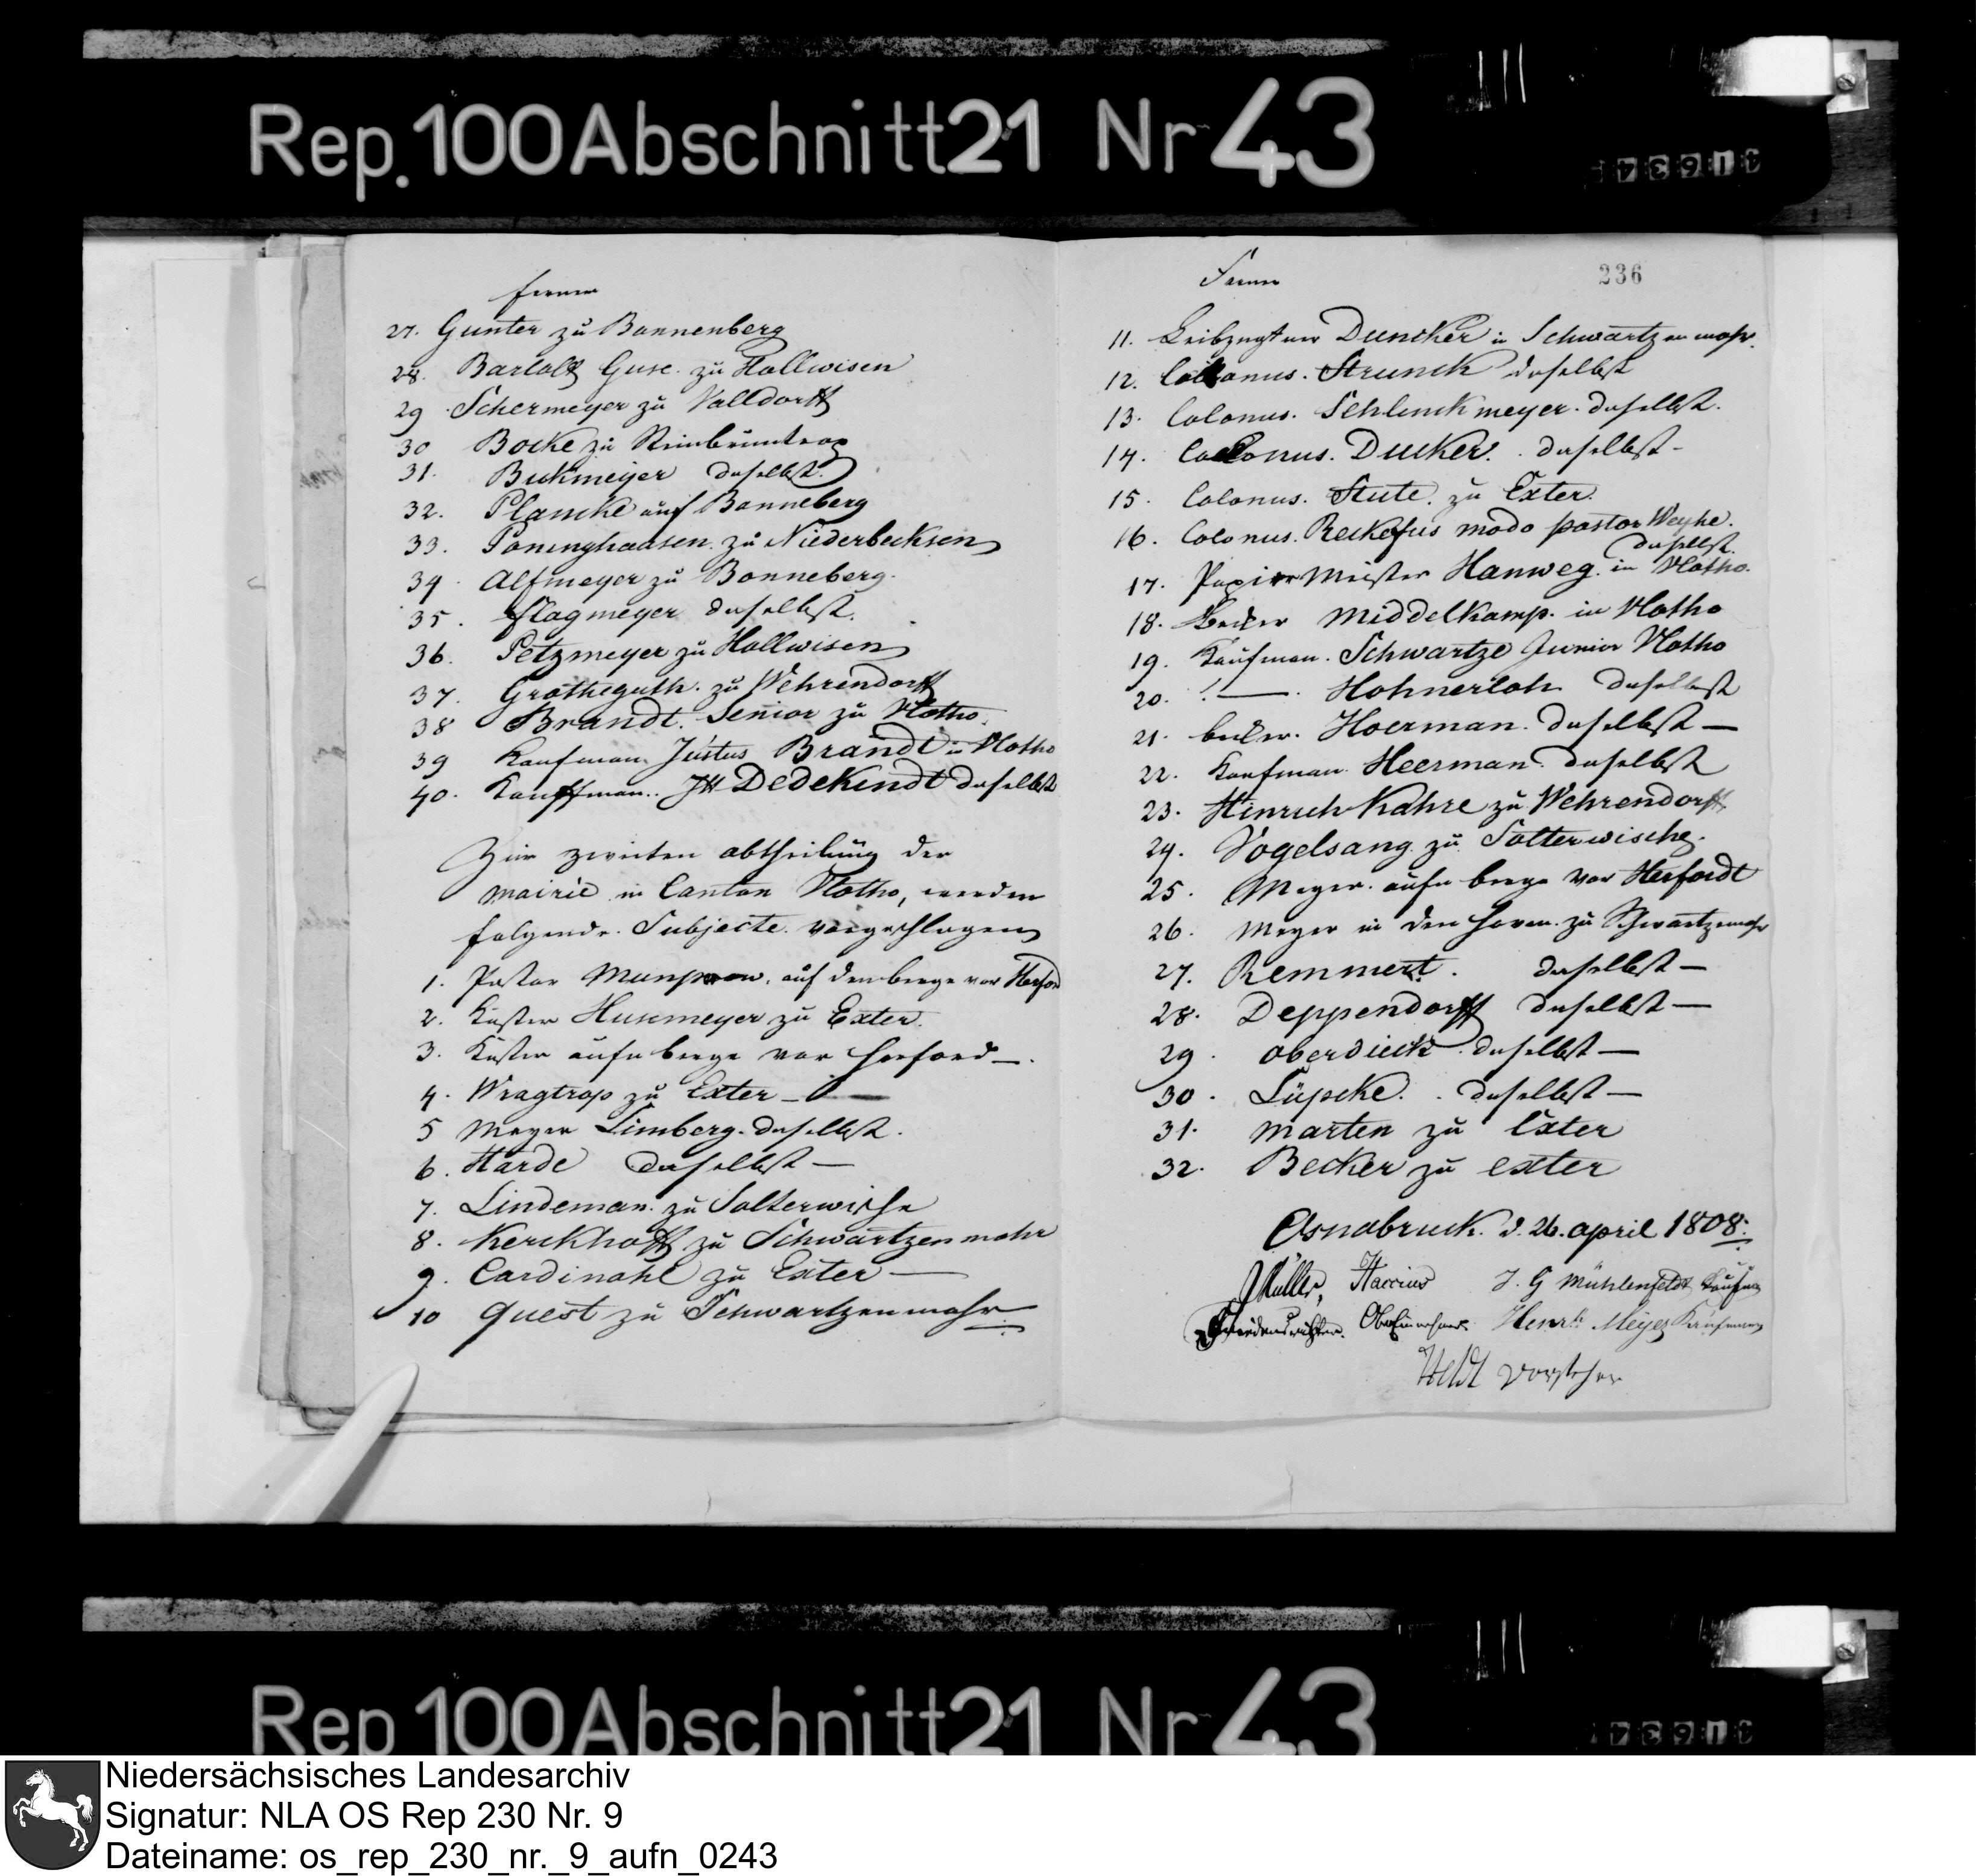 Rep. 100 Abschnitt 21 Nr 43
ferner
27. Gunter zu Bonnenberg
28. Bartold Guse. zu Hollwisen
29 Schermeyer zu Valldorff
30 Bocke zu Steinbrüntrop
31. Bukmeijer daselbst.
32. Plancke auf Bonneberg
33. Poninghaüsen zu Niederbecksen
34. Alfmeyer zu Bonneberg.
35. Flagmeyer daselbst.
36. Petzmeyer zu Hollwisen
37. Grotheguth. zu Wehrendorff
38 Brandt. Senior zu Vlotho.
39 Kaufman Jüstus Brandt in Vlotho
40. Kauffman.. Dedekindt daselbst
Zur zweiten abtheilung der
mairie in Canton Vlotho, werden
folgende Subjecte vorgeschlagen
1. Pastor auf den berge vor
2. Küster Husemeyer zu Exter.
3. Küster aufn berge vor Herford
4. Wragtrop zu Exter
5 Meyer Limberg. daselbst.
6. Harde daselbst
7. Lindeman. zu Solterwische
8. Kerckhoff zu Schwartzenmohr
9. Cardinahl zu Exter
10 quest zu Schwartzenmohr
236
Ferner
11. Leibzugtner Duncker in Schwartzenmohr.
12. Colonus. Strunck daselbst
13. Colonus. Schlinckmeyer. daselbst.
14. Colonus. Ducker. daselbst
15. Colonus. Stute. zu Exter.
16. Colonus. Reckefus modo pastor Weyhe.
daselbst.
17. Papier Meister Hanweg. in Vlotho.
18. Becker Middelkamp. in Vlotho
19. Kaufman. Schwartze Junior Vlotho
20. Hohnerloh daselbst
21. becker. Hoerman. daselbst
22. Kaufman Heerman daselbst
23. Hinrich Kahre zu Wehrendorff
24. Vogelsang zu Solterwische.
25. Meyer. aufn berge vor Herfordt
26. Meyer in den Hoven. zu Schwartzemohr
27. Remmert. daselbst
28. Deppendorff daselbst
29. oberdieck daselbst
30. Lüpcke. daselbst
31. Marten zu Exter
32. Becker zu exter
Osnabruck. d. 26. april 1808.
Müller, Haccius J. G Mühlenfeldt Kaufman
Friedensrichter. Obereinnehmer. Henrh Meyer Kaufmann
Held Vorsteher
Rep 100 Abschnitt 21 Nr 43
Niedersächsisches Landesarchiv
Signatur: NLA OS Rep 230 Nr. 9
Dateiname: os_rep_230_nr._9_aufn_0243